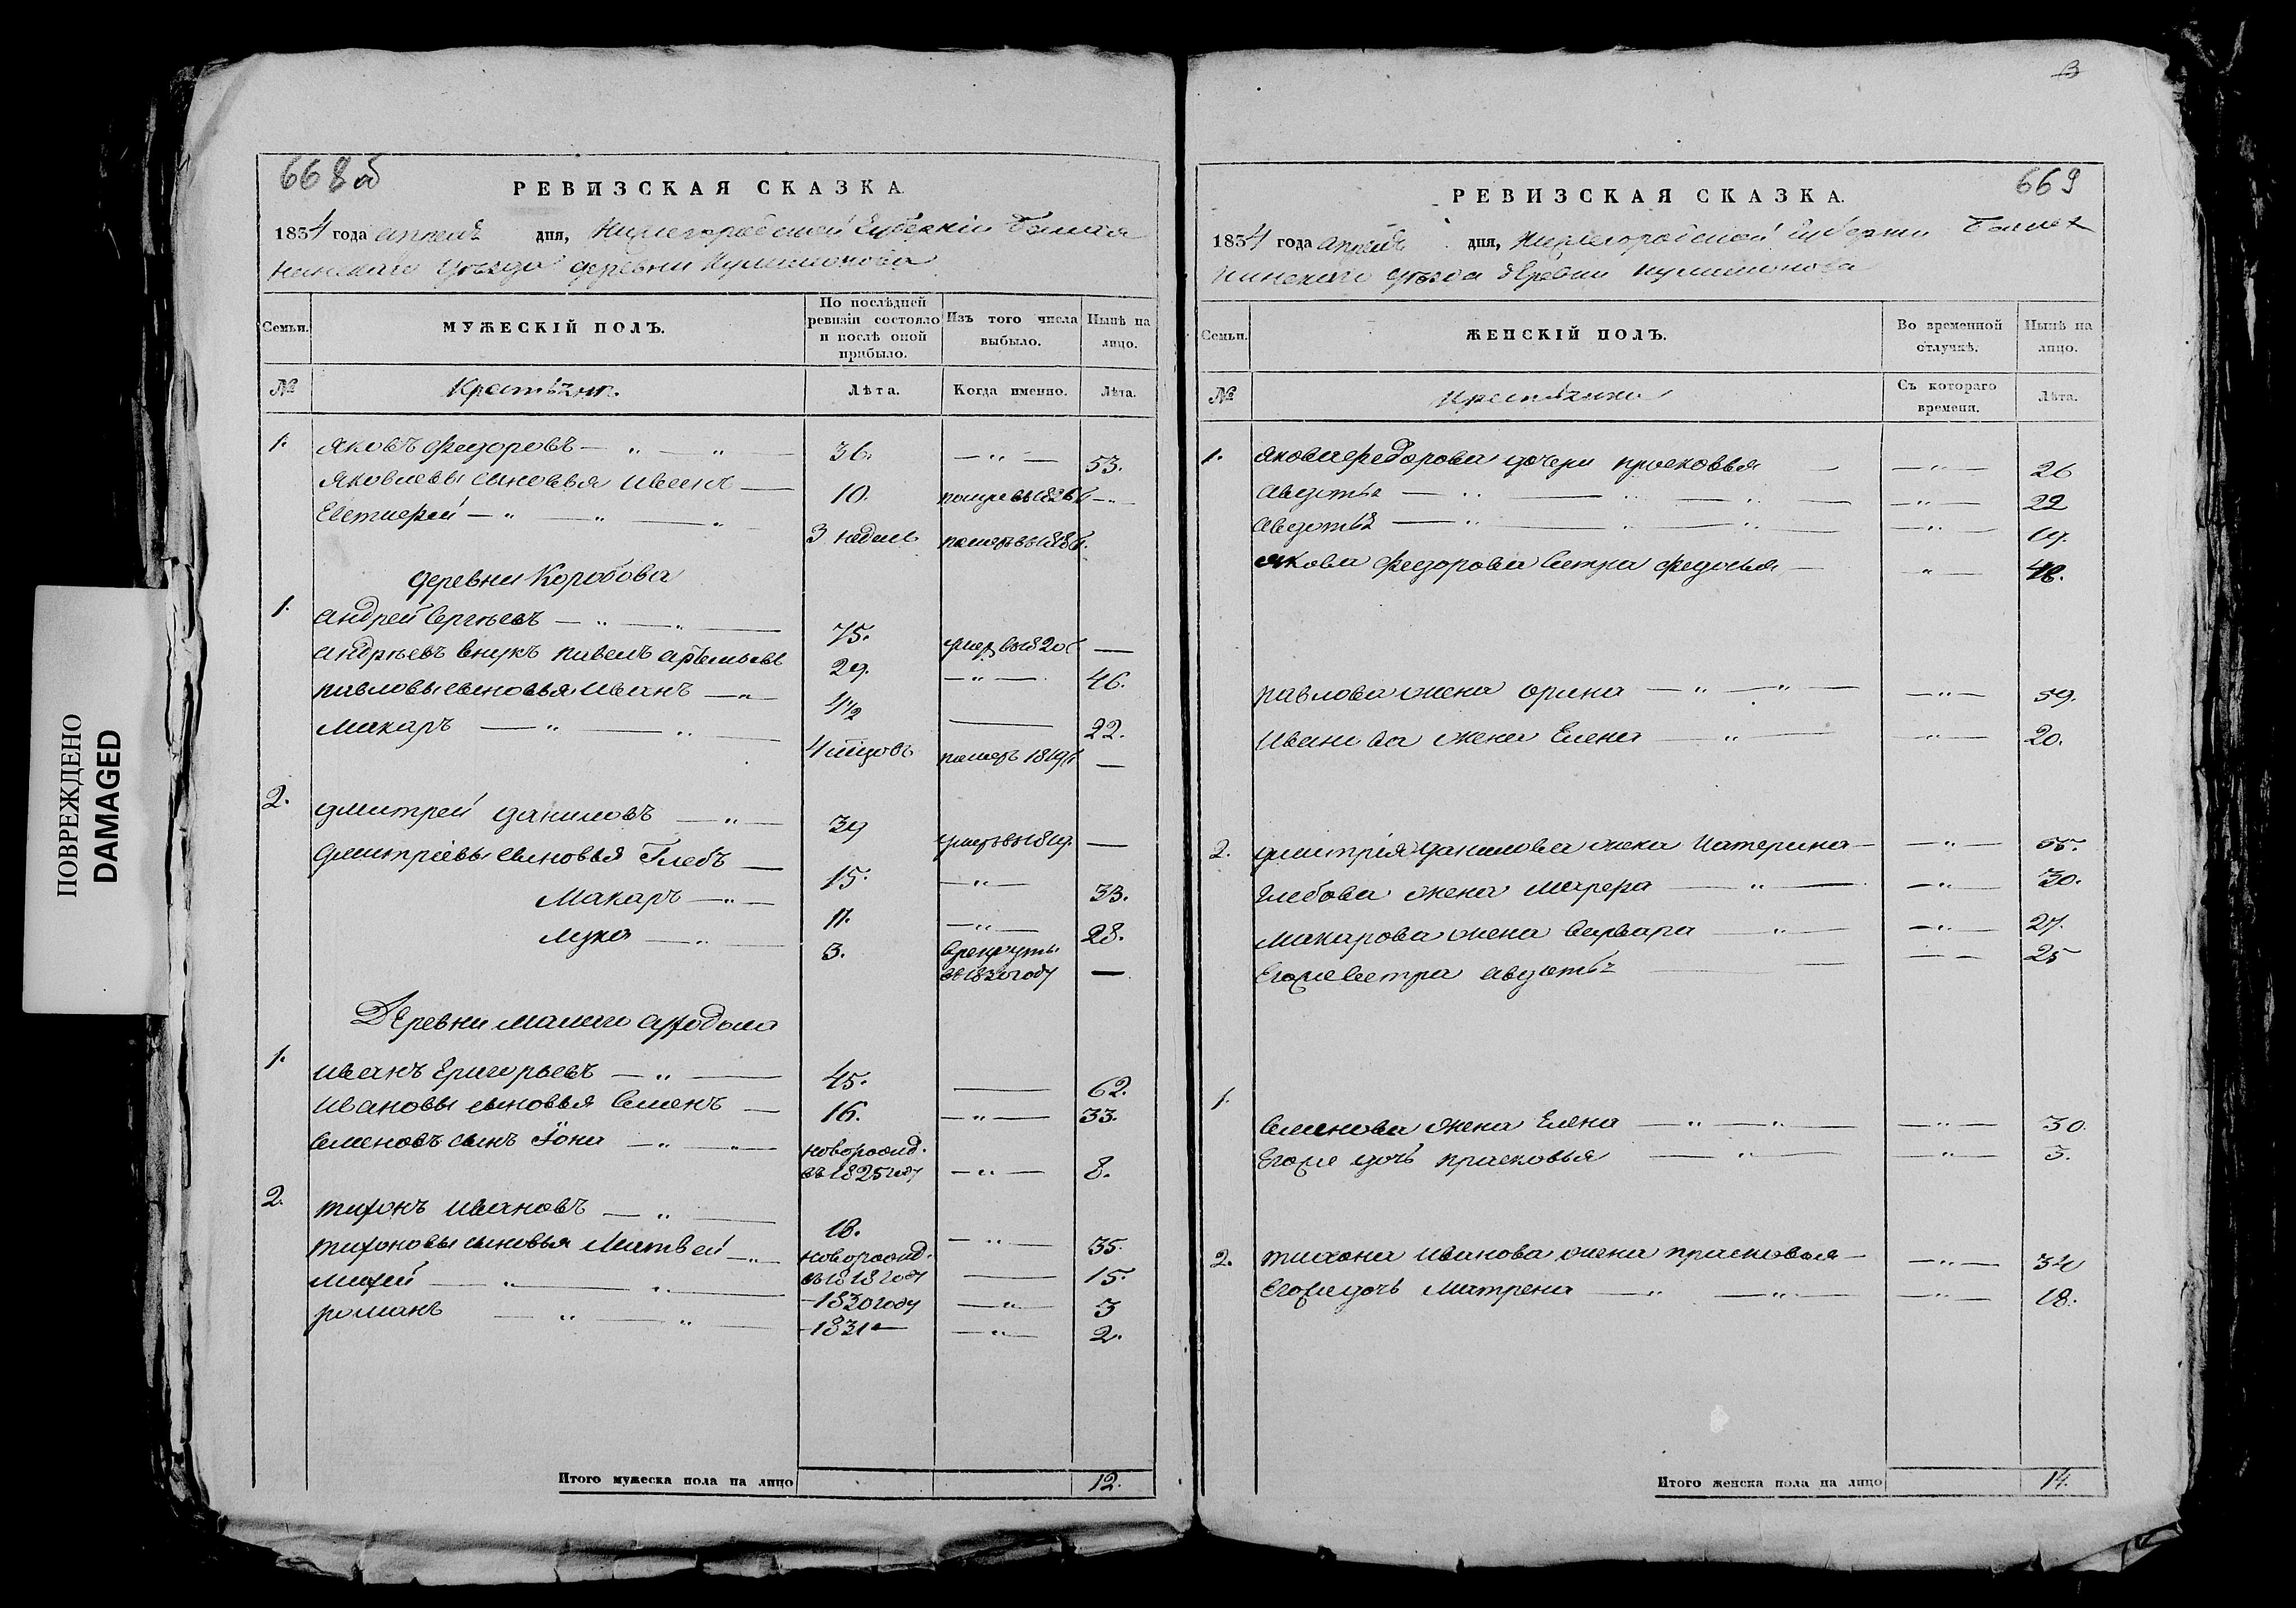 ПОВРЕЖДЕНО
DAMAGED
668 об
РЕВИЗСКАЯ СКАЗКА.
1834 года апреля дня, Нижегородской Губернии Балах
нинскаго уезда деревни Кулишонова
Семьи. МУЖЕСКІЙ ПОЛЪ. По послѣдней ревизіи состояло и послѣ оной прибыло. Изъ того числа выбыло. Нынѣ на лицо.
№ Крестьяне. Лѣта. Когда именно. Лѣта.
1. Яковъ Федоровъ — „ — „ — 36. — „ — 53.
Яковлевы сыновья Иванъ — 10. — „ —
Евстифей — „ — „ — „ 3 недель
деревни Коробова
1. Андрей Сергѣевъ — „ — „ — 75. —
Андрѣевъ внукъ Павелъ 29. — „ — 46.
Павловы сыновья Иванъ — „ 4½ — 22.
Макаръ — „ — „ — 4 мѣсцовъ померъ 1819 —
2. Дмитрей Даниловъ — „ — 39 —
Дмитріевы сыновья Глебъ — 15. — „ — 33.
Макаръ — „ — 11. — „ — 28.
Лука — „ — 3. в рекруты
въ 1830 году —
Деревни Малаго
1. Иванъ Григорьевъ — „ — 45. — 62.
Ивановы сыновья Семенъ — 16. — „ — 33.
Семеновъ сынъ Іона — „ — „ новорожд.
въ 1825 году — „ — 8.
2. Тихонъ Ивановъ — „ — 18. — „ — 35.
Тихоновы сыновья Матвей — „ новорожд.
въ 1818 году — 15.
Михей — „ — „ — 1830 году — „ — 3
Романъ — „ — „ — 1831 — — „ — 2.
Итого мужеска пола на лицо 12.
669
РЕВИЗСКАЯ СКАЗКА.
1834 года апреля дня, Нижегородской Губернии Балах
нинскаго уезда деревни Кулишонова
Семьи. ЖЕНСКІЙ ПОЛЪ. Во временной отлучкѣ. Нынѣ на лицо.
№ Крестьянки Съ котораго времени. Лѣта.
1. Якова Федорова дочери Прасковья — — „ — 26
Авдотья — „ — „ — „ — — „ — 22
Авдотья — „ — „ — „ — — „ —
Якова Федорова сестра Федосья — „ — 48.
Павлова жена Орина — „ — „ — — „ — 39.
Иванова жена Елена — „ — — „ — 20.
2. Дмитрія Данилова жена Катерина — — „ — 55.
Глебова жена Марфа — „ — — „ — 30.
Макарова жена Варвара — „ — — „ — 27.
Егоже сестра Авдотья — — — 25
1. Семенова жена Елена — „ — „ — — „ — 30.
Егоже дочь Прасковья — „ — — „ — 3.
2. Тихона Иванова жена Прасковья — — „ — 34
Егоже дочь Матрена — „ — „ — — „ — 18.
Итого женска пола на лицо 14.